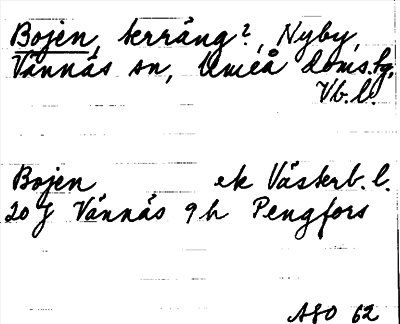 Bojen, terräng?, Nyby,
Vännäs sn, Umeå doms.hg,
Vb.l.
Bojen ek Västerb.l.
20 J Vännäs 9 h Pengfors
ASO 62